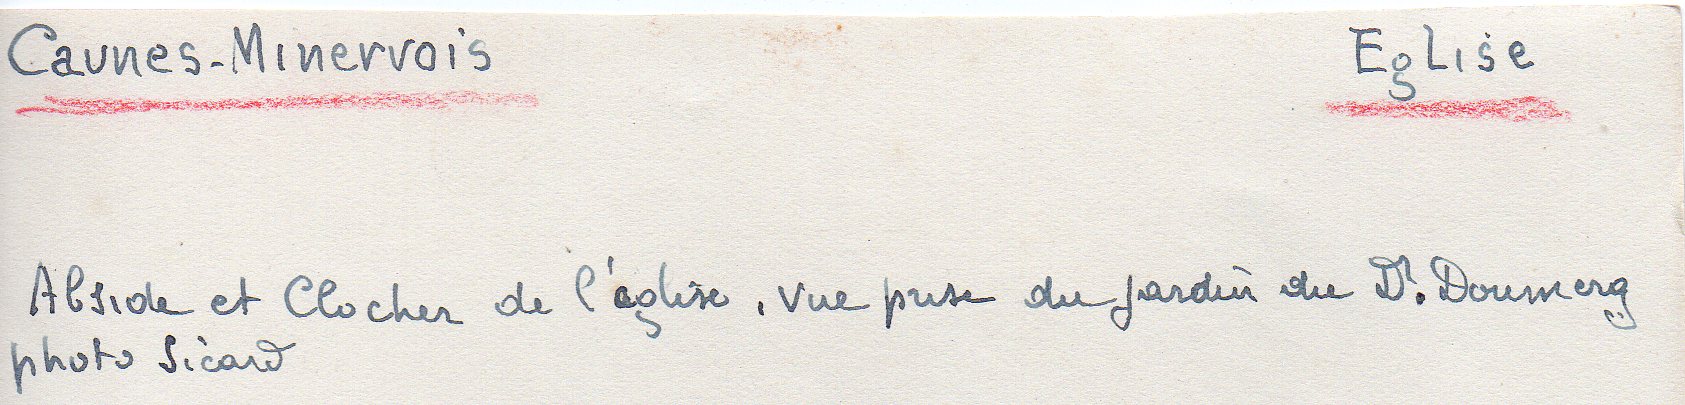 Caunes-Minervois Eglise
Abside et Clocher de l'église, vue prise du jardin du Dr. Doumerg
photo Sicard